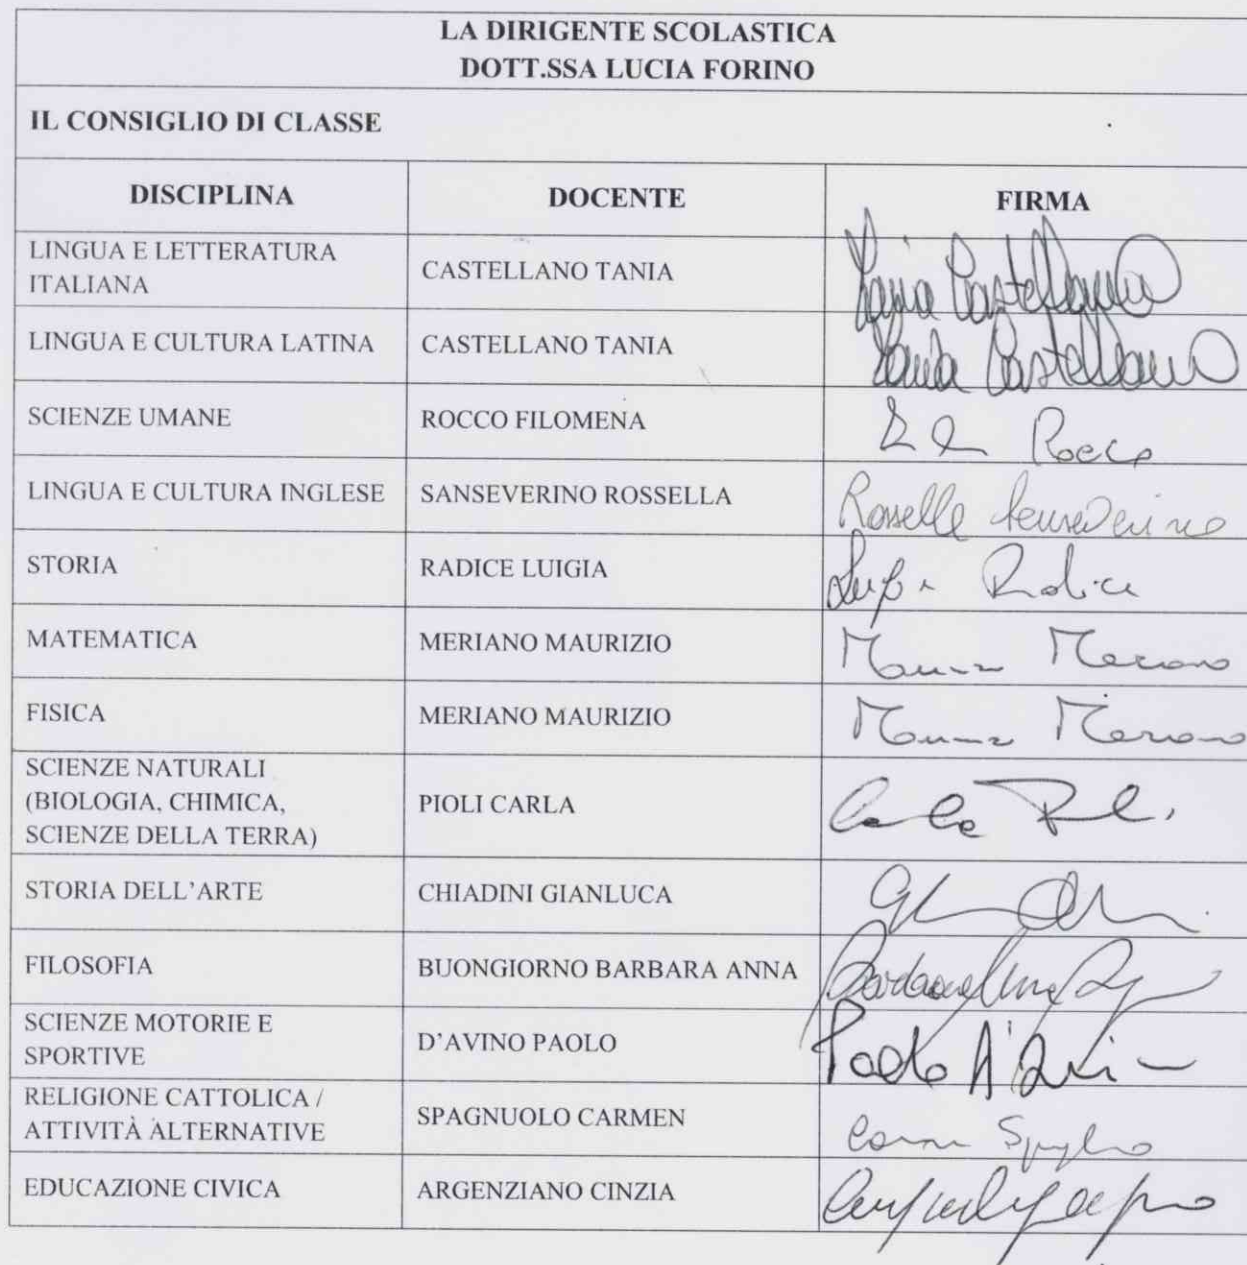 LA DIRIGENTE SCOLASTICA
DOTT.SSA LUCIA FORINO
IL CONSIGLIO DI CLASSE
DISCIPLINA DOCENTE FIRMA
LINGUA E LETTERATURA
ITALIANA
CASTELLANO TANIA Tania Castellano
LINGUA E CULTURA LATINA CASTELLANO TANIA Tania Castellano
SCIENZE UMANE ROCCO FILOMENA Rocco
LINGUA E CULTURA INGLESE SANSEVERINO ROSSELLA Rossella Sanseverino
STORIA RADICE LUIGIA Radice
MATEMATICA MERIANO MAURIZIO Meriano
FISICA MERIANO MAURIZIO Meriano
SCIENZE NATURALI
(BIOLOGIA, CHIMICA,
SCIENZE DELLA TERRA)
PIOLI CARLA Carla
STORIA DELL'ARTE CHIADINI GIANLUCA
FILOSOFIA BUONGIORNO BARBARA ANNA
SCIENZE MOTORIE E
SPORTIVE
D'AVINO PAOLO Paolo D'Avino
RELIGIONE CATTOLICA /
ATTIVITÀ ALTERNATIVE
SPAGNUOLO CARMEN
EDUCAZIONE CIVICA ARGENZIANO CINZIA